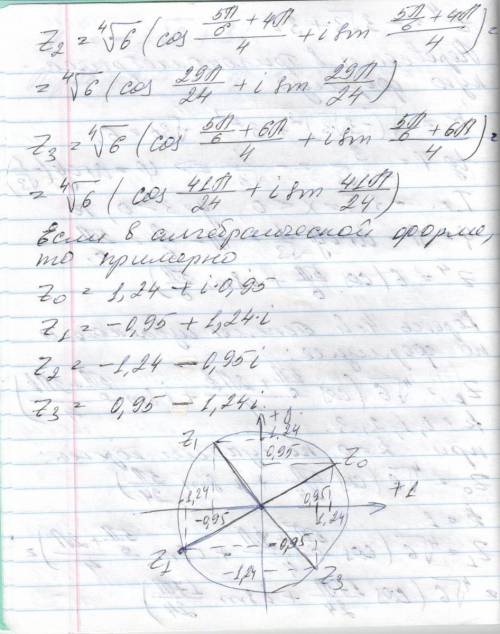 Z₂ = ⁴√6 (cos (5π/6 + 4π)/4 + i sin (5π/6 + 4π)/4) =
= ⁴√6 (cos 29π/24 + i sin 29π/24)
Z₃ = ⁴√6 (cos (5π/6 + 6π)/4 + i sin (5π/6 + 6π)/4) =
= ⁴√6 (cos 41π/24 + i sin 41π/24)
Если в алгебраической форме,
то примерно
Z₀ = 1,24 + i·0,95
Z₁ = -0,95 + 1,24·i
Z₂ = -1,24 - 0,95i
Z₃ = 0,95 - 1,24i
Z₁ 1,24
0,95 Z₀
-1,24 0,95 +1
-0,95 1,24
Z₁ -0,95
-1,24 Z₃